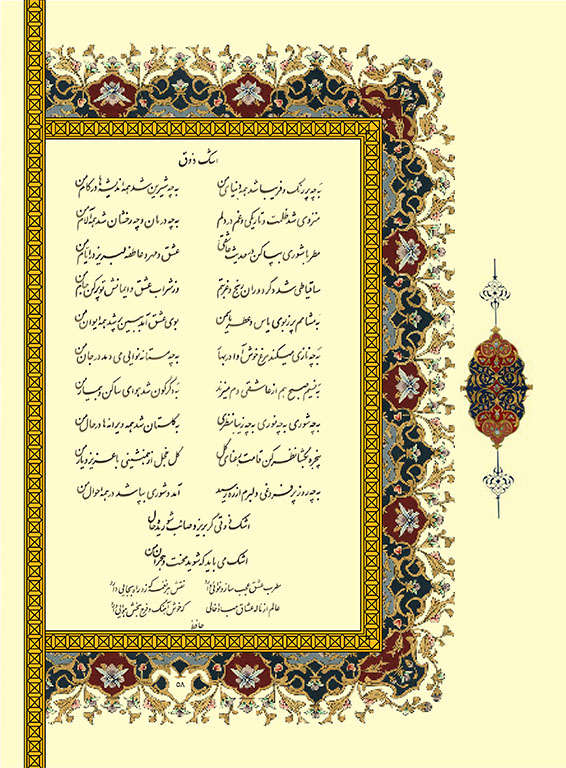 اشک ذوق
به چه پر رنگ و فریبا شد همه دنیای من به چه شیرین شد همه اندیشه ها در کام من
منزوی شد ظلمت و تاریکی و غم در دلم به چه درمان و چه رخشان شد همه آلام من
مطربا شوری بپا کن با حدیث عاشقی عشق و مهر و عاطفه لبریز در ایام من
ساقیا طی شد دگر دوران رنج و غربتم وز شراب عشق و ایمانش تو پر کن جام من
به مشامم پر ز بوی یاس و عطر بوی عشق آمد ببین پر شد همه ایوان من
به چه نازی میکند مرغ خوش آوا در بهار به چه مستانه نوایی می دمد در جان من
به نسیم صبح هم از عاشقی دم میزند به دگرگون شد هوای ساکن و من
به چه شوری به چه نوری به چه زیبا منظری به گلستان شد همه ویرانه ها در حال من
پنجره بگشا نظر کن قامت رعنای گل گل خجل از همنشینی با عزیز و یار من
به چه روز پر فروغی دلبرم از ره رسید آمد و شوری بپا شد در همه احوال من
اشک ذوقی گر بریزد صائب شوریده دل
اشک می باید که شوید محنت و هجران من
مطرب عشق عجب ساز و نوائی دارد نقش هر نغمه که زد راه بجایی دارد
عالم از ناله عشاق مبادا خالی که خوش آهنگ و فرح بخش هوائی دارد
حافظ
۵۸